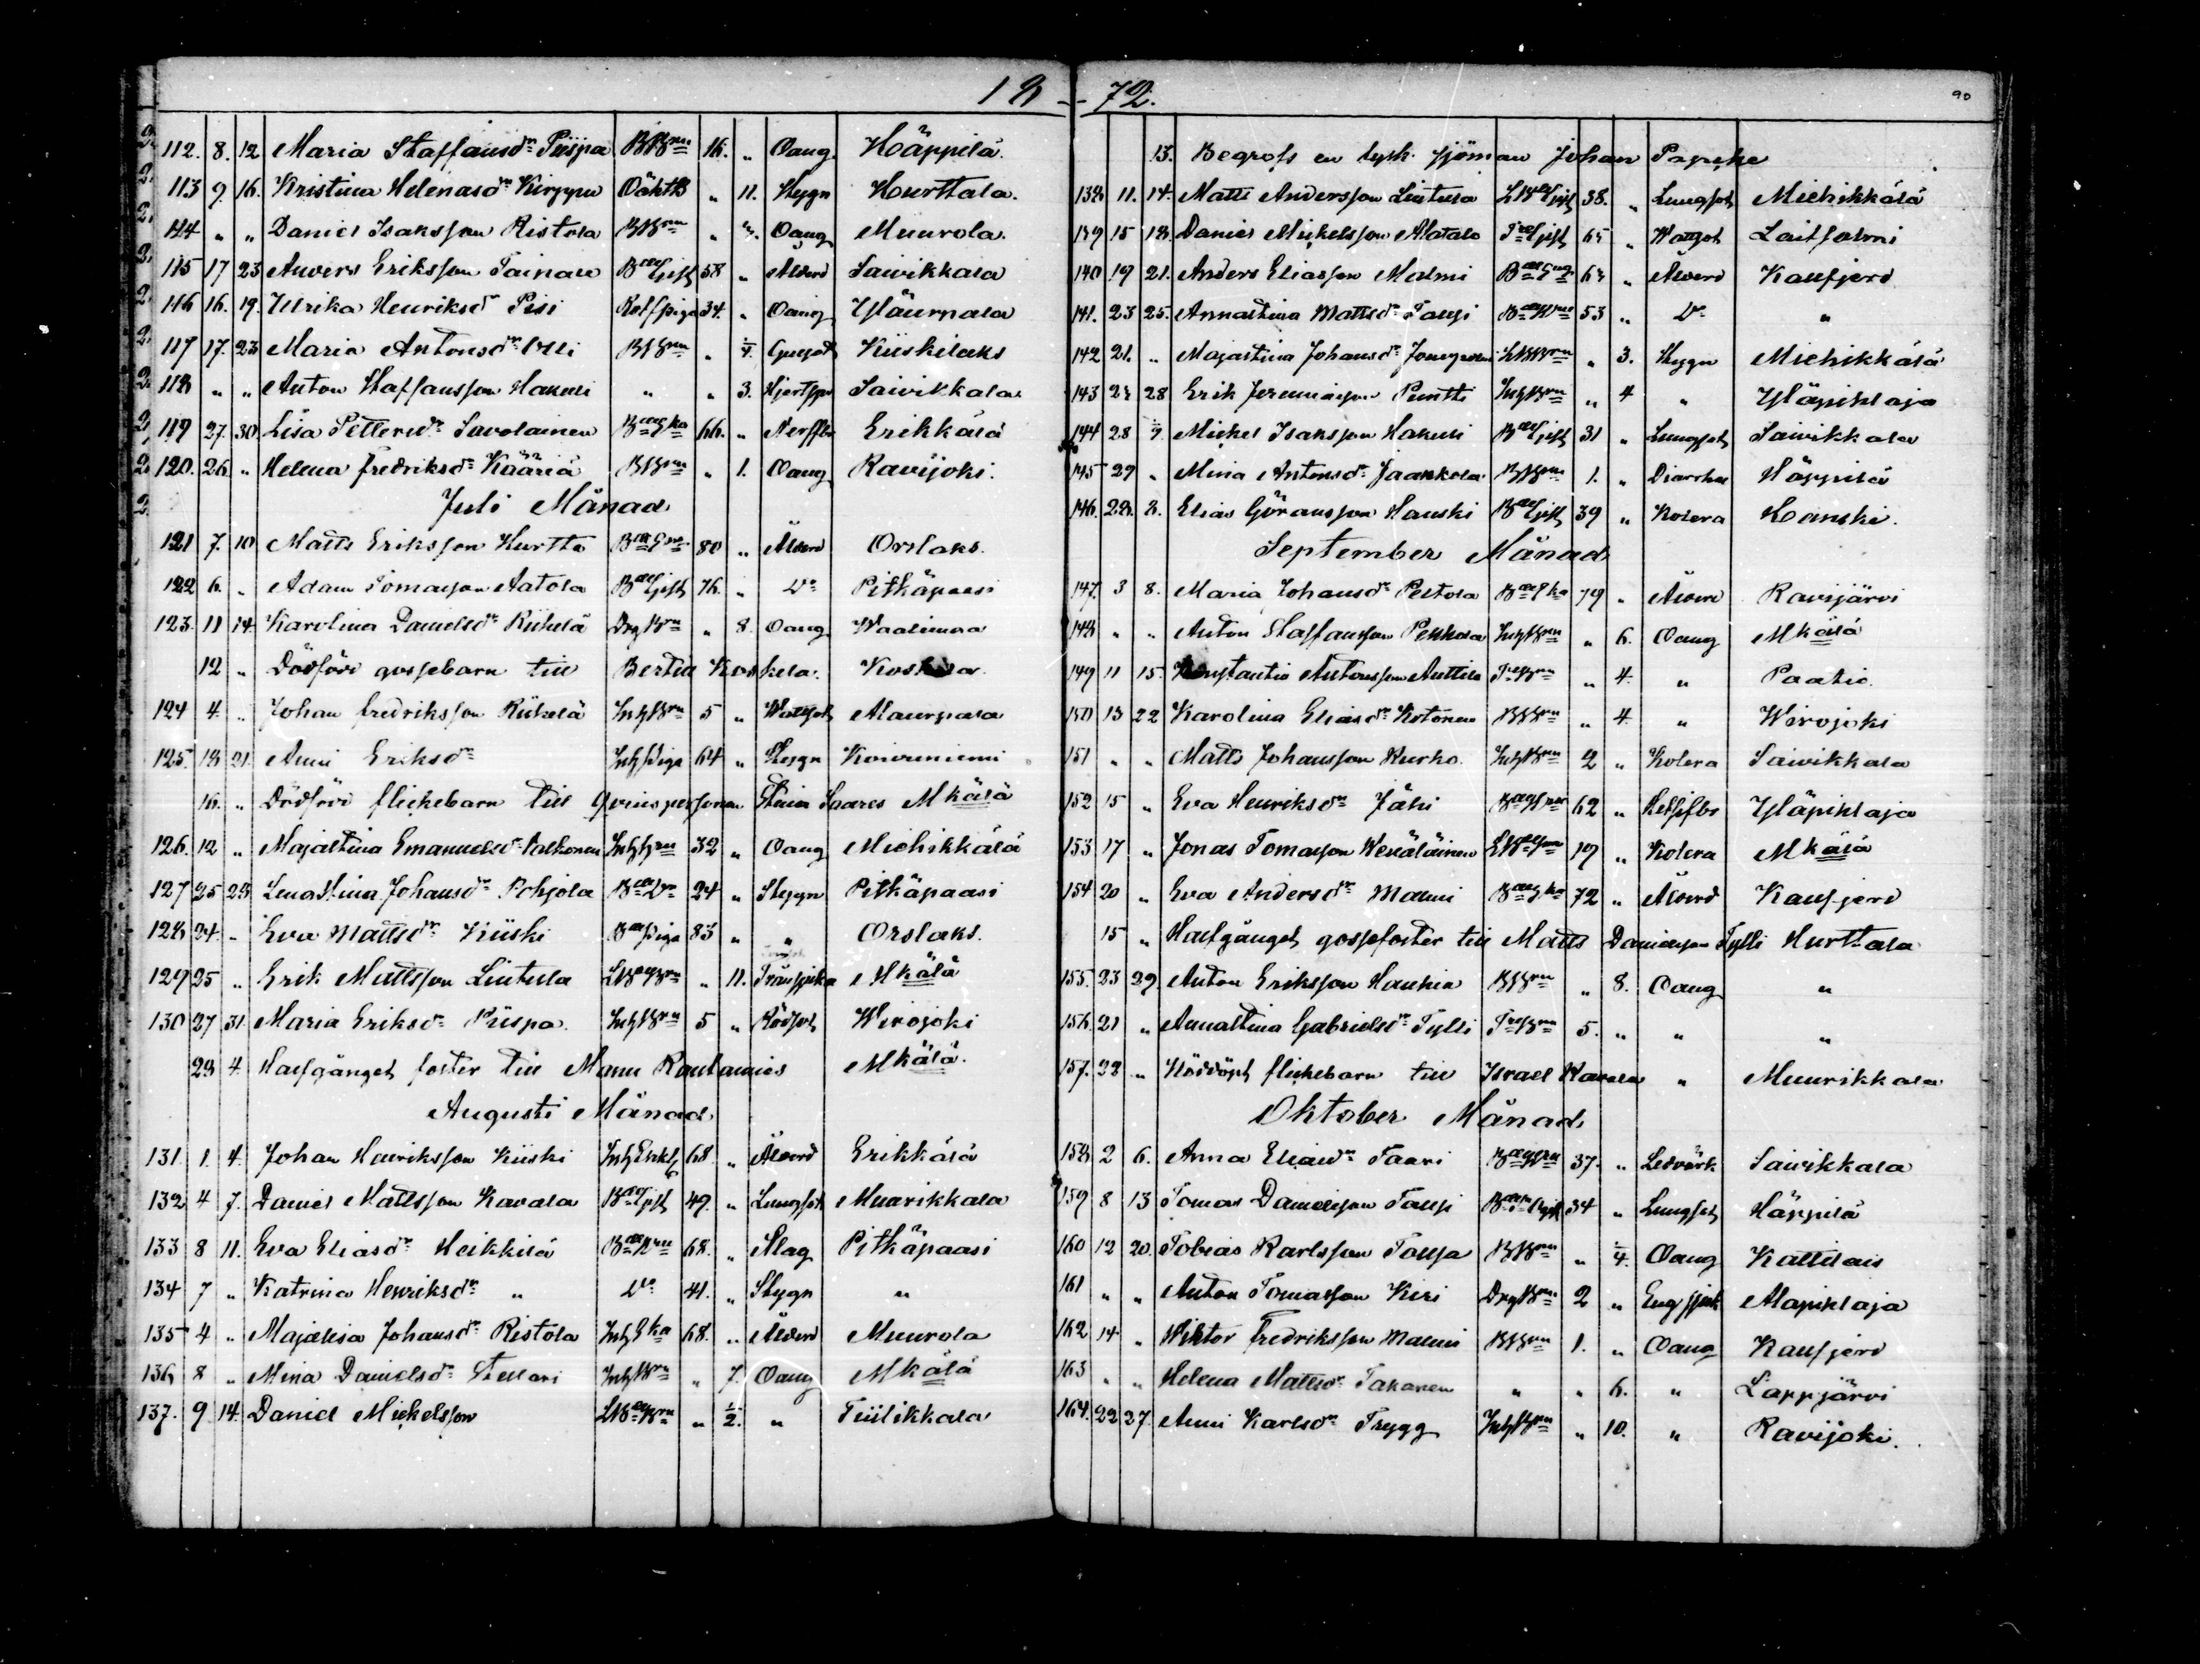 18 72.
90
112. 8. 12 Maria Staffansdr Piispa BBrn 16. „ Oang Häppilä.
113 9. 16. Kristina Helenasdr Kirppu Oäkta „ 11. Stygn Hurttala.
114 „ „ Daniel Isaksson Ristola BBrn „ Oang Muurola.
115 17 23 Anders Eriksson Tainale Bde Gift 58 „ Ålderd Saivikkala
116 16. 19. Ulrika Henriksdr Pesi piga 34. „ Oang Yläurpala
117 17. 23 Maria Antonsdr Olli BBrn „ Kiiskilaks
118 „ „ Anton Staffansson Hakuli „ „ 3. Saivikkala
119 27. 30 Lisa Pettersdr Savolainen 66. „ Nerffb Erikkälä
120. 26. „ Helena Fredriksdr Kääriä BBrn „ 1. Oang Ravijoki.
Juli Månad
121 7. 10 Matts Eriksson Hurtta 80 „ Ålderd Orslaks.
122 6. „ Adam Tomasson Aatola Bde Gift 76. „ Do Pitkäpaasi
123. 11 14. Karolina Danielsdr Riihelä DrgBrn „ 8. Oang Waalimaa
12 „ Dödfödt gossebarn till Bertil Koskela. Koskela.
124 4. „ Johan Fredriksson Riihelä InhBrn 5 „ Wattsot Alaurpala
125. 18 21. Anni Eriksdr Inh piga 64 „ Stygn Koivuniemi
16. „ Dödfödt flickebarn till qvinspersonen Stina Saares Mkälä
126. 12 „ Majastina Emanuelsdr Valkonen 32 „ Oang Miehikkälä
127 25 28 Lenastina Johansdr Pohjola 24 „ Stygn Pitkäpaasi
128 24. „ Eva Mattsdr Kiiski piga 83 „ „ Orslaks.
129 25 „ Erik Mattsson Lintula „ 11. Mkälä
130 27 31 Maria Eriksdr Piispa. InhBrn 5 „ Rödsot Wirojoki
28 4. Halfgånget foster till Manu Rautamies Mkälä.
Augusti Månad
131 1. 4. Johan Henriksson Kiiski Inh Enkl 68. „ Ålderd Erikkälä
132 4 7. Daniel Mattsson Kavala Bde Gift 49. „ Lungsot Muurikkala
133 8 11. Eva Eliasdr Heikkilä 68. „ Slag Pitkäpaasi
134 7 „ Katrina Henriksdr „ Do 41. „ Stygn „
135 4 „ Majalisa Johansdr Ristola Inh Eka 68. „ Ålderd Muurola
136 8 „ Mina Danielsdr InhBrn „ 7. Oang Mkälä
137. 9 14. Daniel Mickelsson „ 1/2. „ Tiilikkala
13. Begrofs en tysk sjöman Johan Papuke
138 11. 14. Matts Andersson Lintula 38. „ Lungsot Miehikkälä
139 15 18. Daniel Mickelsson Alatalo Gift 65 „ Wattsot Laitsalmi
140 19 21. Anders Eliasson Malmi „ Ålderd Kansjerd
141. 23 25. Annastina Mattsdr 53 „ Do „
142 21. „ Majastina Johansdr „ 3. Stygn Miehikkälä
143 28 Erik Jeremiasson Puntti InhBrn „ 4 „ Yläpihlaja
144 28 Mickel Isaksson Hakuli Bde Gift 31 „ Lungsot Saivikkala
145 29 „ Mina Antonsdr Jaakkola BBrn 1. „ Diarrhe Häppilä
146. 28. 3. Elias Göransson Hanski Bde Gift 39 „ Kolera Hanski.
September Månad
147. 3 8. Maria Johansdr Peltola Bde Eka 79 „ Ålderd Ravijärvi
148 „ „ Anton Staffansson Pekkola InhBrn „ 6. Oang Mkälä
149 11 15. Konstantin Antonsson Anttila „ 4. „ Paatio.
150 13 22 Karolina Eliasdr Kotonen BBrn „ 4. „ Wirojoki
151 „ „ Matts Johansson Kurko. InhBrn 2 „ Kolera Saivikkala
152 15 „ Eva Henriksdr Jähi 62 „ Yläpihlaja
153 17 „ Jonas Tomasson Wenäläinen „ Kolera Mkälä
154 20 „ Eva Andersdr Malmi 72 „ Ålderd Kansjerd
15 „ Halfgånget gossefoster till Matts Danielsson Tylli Hurttala
155. 23 29. Anton Eriksson Hauhia BBrn „ 8. Oang „
156. 21 „ Annastina Gabrielsdr Tylli 5. „ „ „
157. 22 „ Nöddöpt flickebarn till Israel Kavala „ Muurikkala
Oktober Månad
158 2 6. Anna Eliasdr Taari 37. „ Ledvärk Saivikkala
159 8 13 Tomas Danielsson 34 „ Lungsot Häppilä
160 12 20. Tobias Karlsson BBrn „ Oang Kattilais
161 „ „ Anton Tomasson Kiri DrgBrn 2 „ Eng sjuk Alapihlaja
162 14 „ Wiktor Fredriksson Malmi BBrn 1. „ Oang Kansjerd
163 „ „ Helena Mattsdr Takanen „ „ 6. „ Lappjärvi
164. 22 27. Anni Karlsdr Trygg InhBrn „ 10. „ Ravijoki.